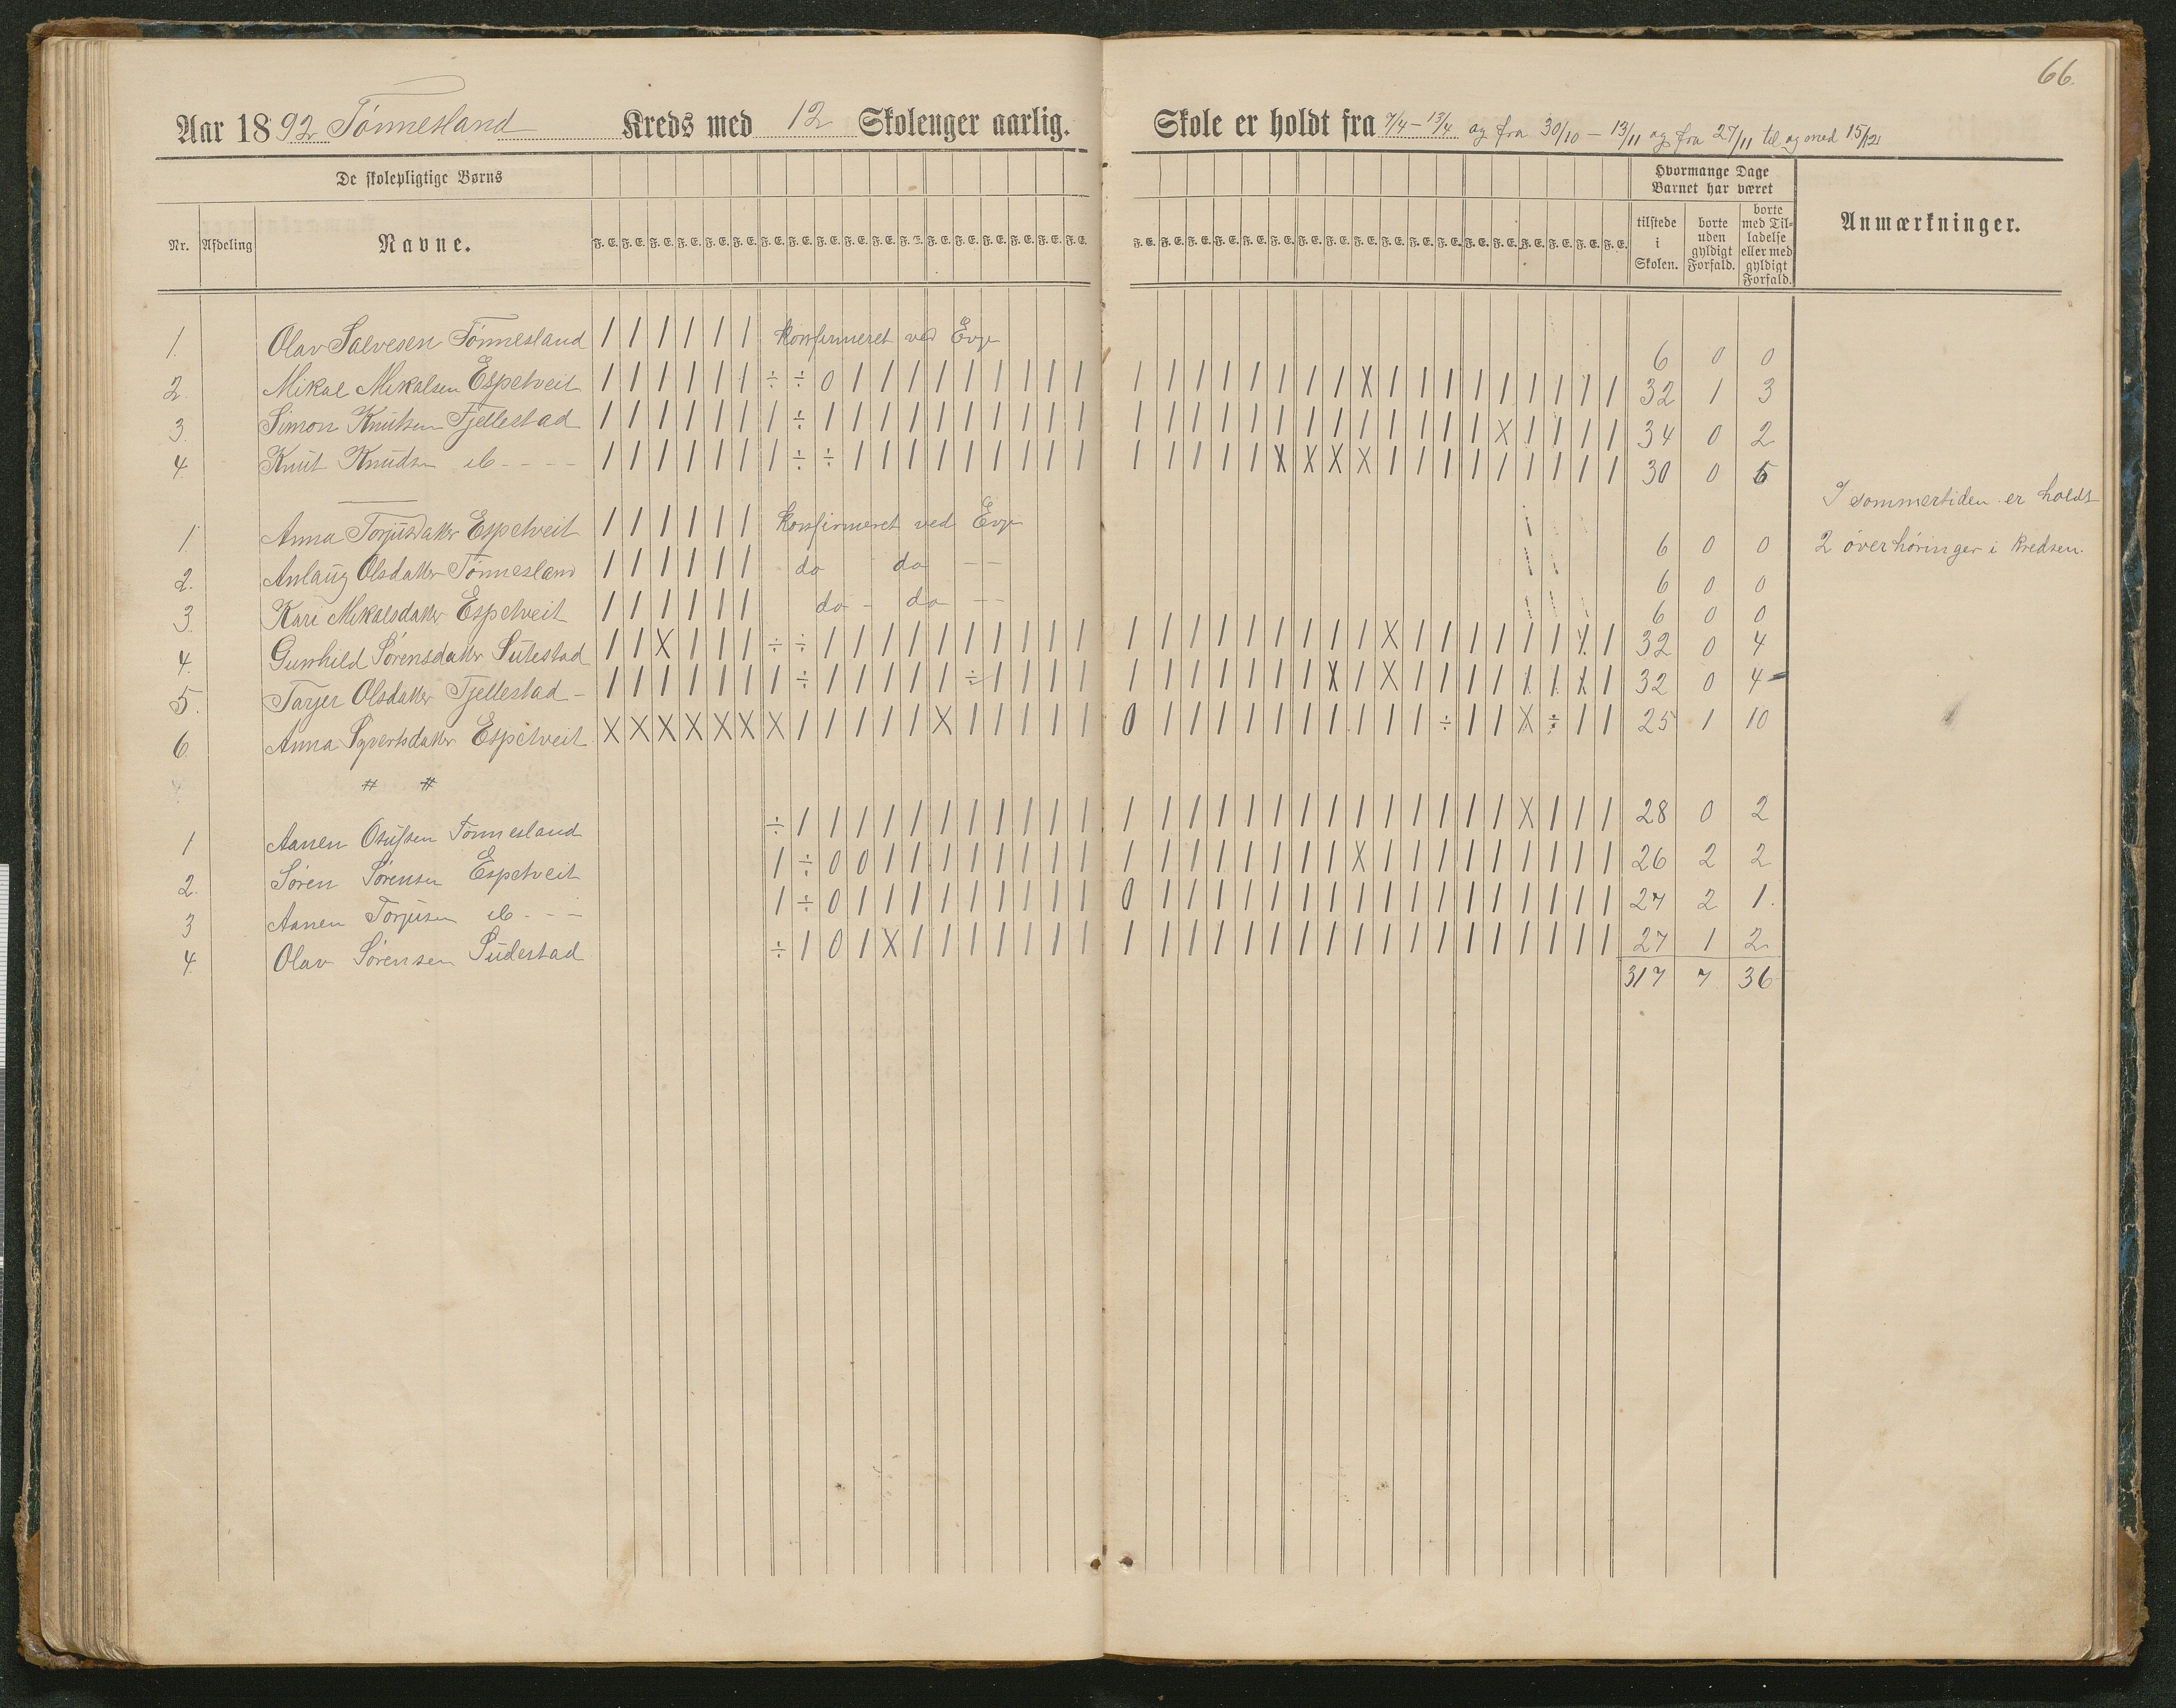 66.
Aar 1892 Tónnesland Kreds med 12 Skolenger aarlig. Skole er holdt fra 7/4 - 13/4 og fra 30/10 - 13/11 og fra 27/11 til og med 15/12
De skolepligtige Børns
Hvormange Dage Barnet har været
Nr. Afdeling Navne. F. E. F. E. F. E. F. E. F. E. F. E. F. E. F. E. F. E. F. E. F. E. F. E. F. E. F. E. F. E. F. E. F. E. F. E. F. E. F. E. F. E. F. E. F. E. F. E. F. E. F. E. F. E. F. E. F. E. F. E. F. E. F. E. F. E. F. E. F. E. F. E. tilstede i Skolen. borte uden gyldigt Forfald. borte med Tilladelse eller med gyldigt Forfald. Anmærkninger.
1. Olav Salvesen Tónnesland / / / / / / konfirmeret ved Evje 6 0 0
2. Mikal Mikalsen Espetveit / / / / / / ÷ ÷ 0 / / / / / / / / / / / / / / / / / / X / / / / / / / / / 32 1 3
3. Simon Knutsen Fjellestad / / / / / / / ÷ / / / / / / / / / / / / / / / / / / / / / / / X / / / / 34 0 2
4. Knut Knudsen ib - - - - / / / / / / / ÷ ÷ / / / / / / / / / / / / / / X X X X / / / / / / / / / 30 0 6
I sommertiden er holdt
1. Anna Torjusdatter Espetveit / / / / / / konfirmeret ved Evje 6 0 0
2 overhøringer i kredsen.
2. Anlaug Olsdatter Tónnesland / / / / / / do do - - 6 0 0
3. Kari Mikalsdatter Espetveit / / / / / / do - do - - 6 0 0
4. Gunhild Sórensdatter Sutestad / / X / / / ÷ ÷ / / / / / / / / / / / / / / / / / / / X / / / / / / X / 32 0 4
5. Tarjer Olsdatter Fjellestad - / / / / / / / ÷ / / / / / ÷ / / / / / / / / / / / X / X / / / / / / X / 32 0 4
6. Anna Syvertsdatter Espetveit X X X X X X X / / / / / X / / / / / 0 / / / / / / / / / / ÷ / / X ÷ / / 25 1 10
# #
1 Aanen Tónnesland ÷ / / / / / / / / / / / / / / / / / / / / / / / / / X / / / 28 0 2
2. Sóren Sórensen Espetveit / ÷ 0 0 / / / / / / / / / / / / / / / / X / / / / / / / / / 26 2 2
3 Aanen Torjusen ib - - - / ÷ 0 / / / / / / / / / 0 / / / / / / / / / / / / / / / / / 27 2 1.
4. Olav Sórensen Sudestad ÷ / 0 / X / / / / / / / / / / / / / / / / / / / / / / / / / 27 1 2
317 7 36